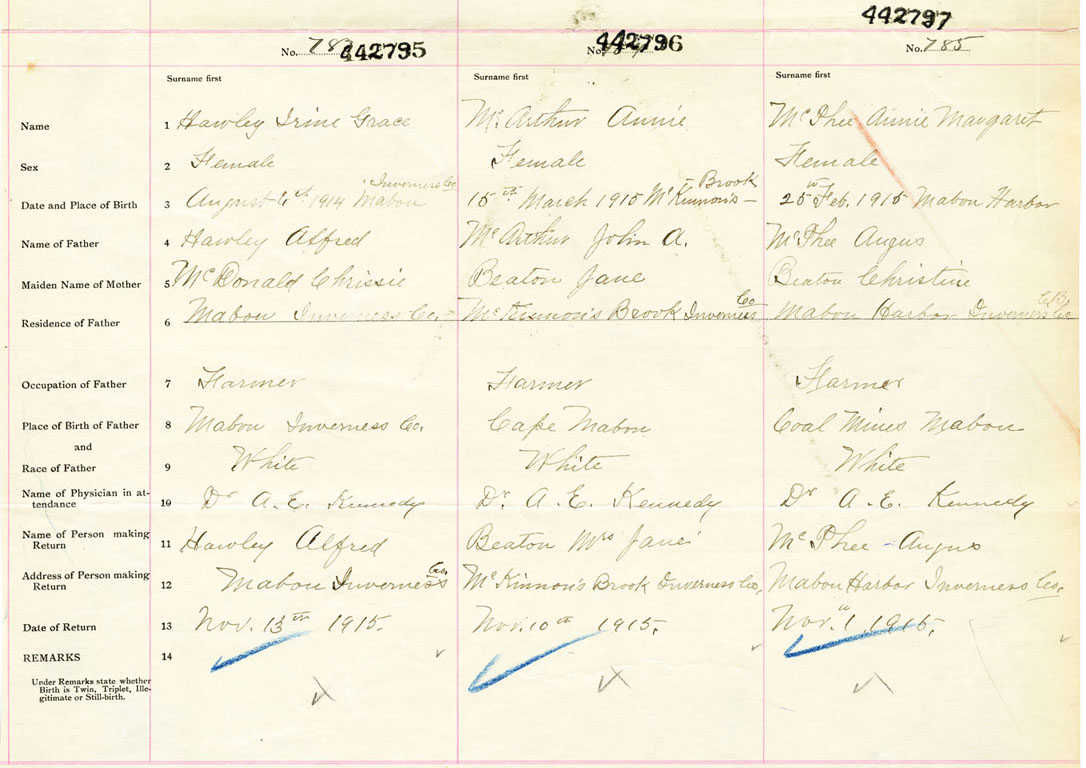 442797
No. 783 442795
No. 442796
No. 785
Surname first
Surname first
Surname first
Name 1 Hawley Irine Grace Mc Arthur Annie Mc Phee Annie Margaret
Sex 2 Female Female Female
Inverness Co - Brook
Date and Place of Birth 3 August 1914 Mabou 15th March 1915 McKinnon's - 25th Feb. 1915 Mabou Harbor
Name of Father 4 Hawley Alfred McArthur John A. McPhee Angus
Maiden Name of Mother 5 McDonald Chrissie Beaton Jane Beaton Christine
Co C.B.
Residence of Father 6 Mabou Inverness Co. McKinnon's Brook Inverness Mabou Harbor Inverness Co
Occupation of Father 7 Farmer Farmer Farmer
Place of Birth of Father 8 Mabou Inverness Co. Cape Mabou Coal Mines Mabou
and
Race of Father 9 White White White
Name of Physician in at-
tendance 10 Dr A. E. Kennedy Dr A. E. Kennedy Dr A. E. Kennedy
Name of Person making
Return 11 Hawley Alfred Beaton Mrs Jane Mc Phee - Angus
Co.
Address of Person making
Return 12 Mabou Inverness McKinnon's Brook Inverness Co. Mabou Harbor Inverness Co.
Date of Return 13 Nov. 13th 1915. Nov. 10th 1915. Nov. 1 1915.
REMARKS 14
Under Remarks state whether
Birth is Twin, Triplet, Ille-
gitimate or Still-birth.